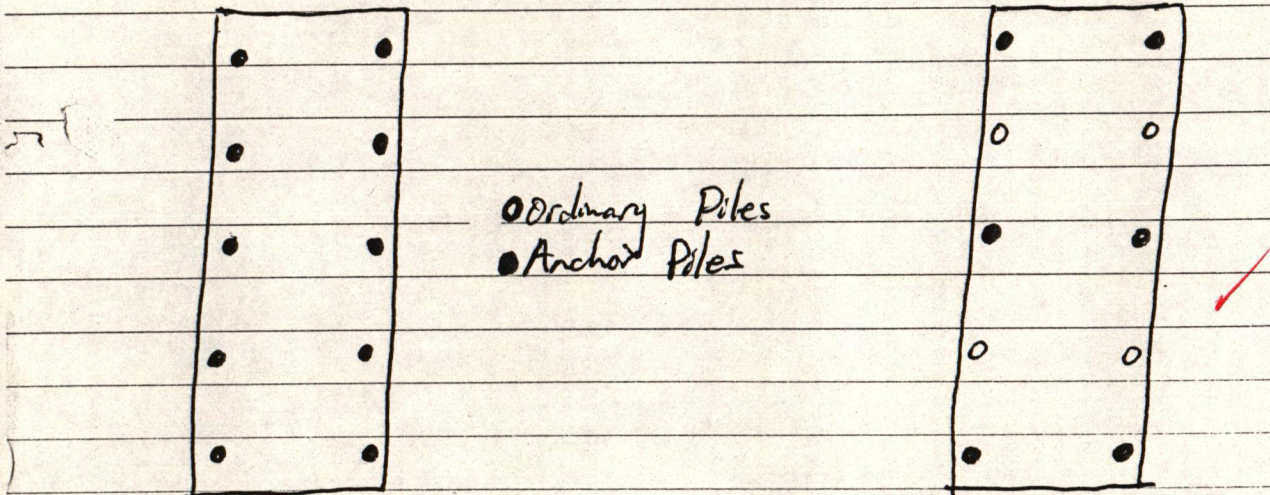 Ordinary Piles
Anchor Piles